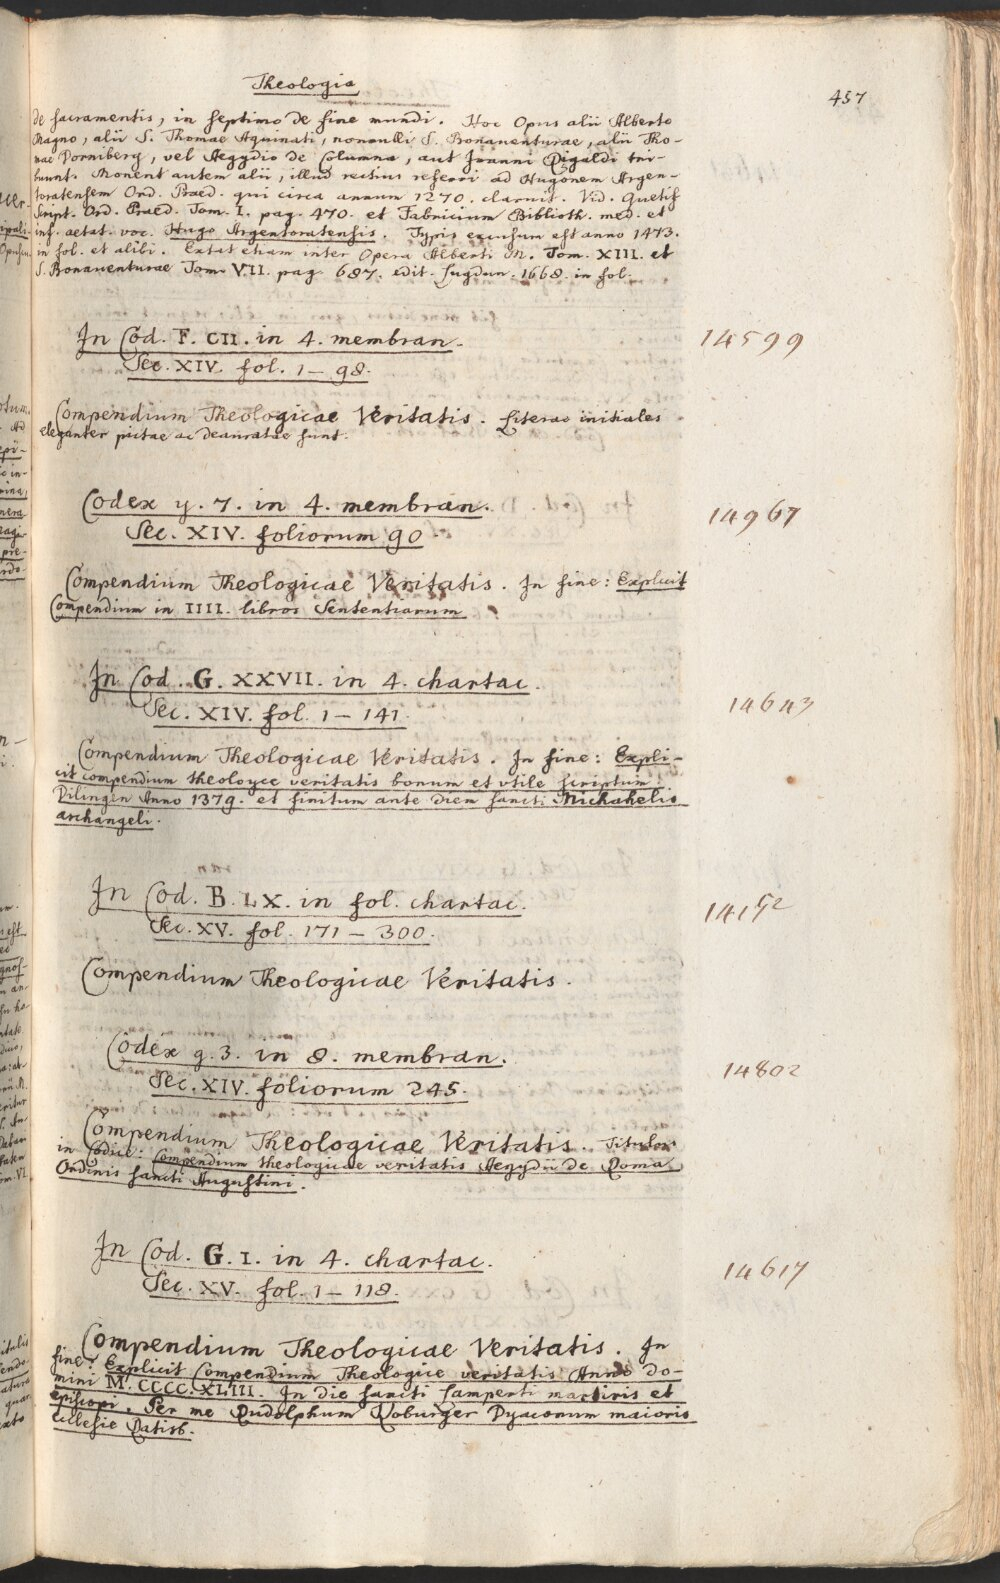 Theologia
457
de sacramentis, in septimo de fine mundi. Hoc Opus alii Alberto
Magno, alii S. Thomae Aquinati, nonnulli S. Bonaventurae, alii Tho-
mae Dorniberg, vel Aegydio de Columna, aut Joanni Rigaldi tri-
buunt. Monent autem alii, illud rectius referri ad Hugonem Argen-
toratensem Ord. Praed. qui circa annum 1270. claruit. Vid. Quetif
Script. Ord. Praed. Tom. I. pag. 470. et Fabricium Biblioth. med. et
inf. aetat. voc. Hugo Argentoratensis. Typis excusum est anno 1473.
in fol. et alibi. Extat etiam inter Opera Alberti M. Tom. XIII. et
S. Bonaventurae Tom. VII. pag. 687. edit. Lugdun. 1668. in fol.
In Cod. F. CII. in 4. membran.
14599
Sec. XIV. fol. 1 – 98.
Compendium Theologicae Veritatis. Literae initiales
eleganter pictae ac deauratae sunt.
Codex y. 7. in 4. membran.
14967
Sec. XIV. foliorum 90
Compendium Theologicae Veritatis. In fine: Explicit
Compendium in IIII. libros Sententiarum
In Cod. G. XXVII. in 4. chartac.
14643
Sec. XIV. fol. 1 – 141.
Compendium Theologicae Veritatis. In fine: Expli-
cit compendium theologyce veritatis bonum et vtile scriptum
Dilingen Anno 1379. et finitum ante diem sancti Michahelis
archangeli.
In Cod. B. LX. in fol. chartac.
14152
Sec. XV. fol. 171 – 300.
Compendium Theologicae Veritatis.
Codex g. 3. in 8. membran.
14802
Sec. XIV. foliorum 245.
Compendium Theologicae Veritatis. Titulus
in Codice: Compendium theologicae veritatis Aegydii de Roma
Ordinis sancti Augustini.
In Cod. G. I. in 4. chartac.
14617
Sec. XV. fol. 1 – 118.
Compendium Theologicae Veritatis. In
fine: Explicit Compendium Theologice veritatis Anno do-
mini M. CCCC. XLIII. In die sancti Lamperti martiris et
episcopi. Per me Rudolphum Voburger Dyaconum maioris
ecclesie Ratisb.